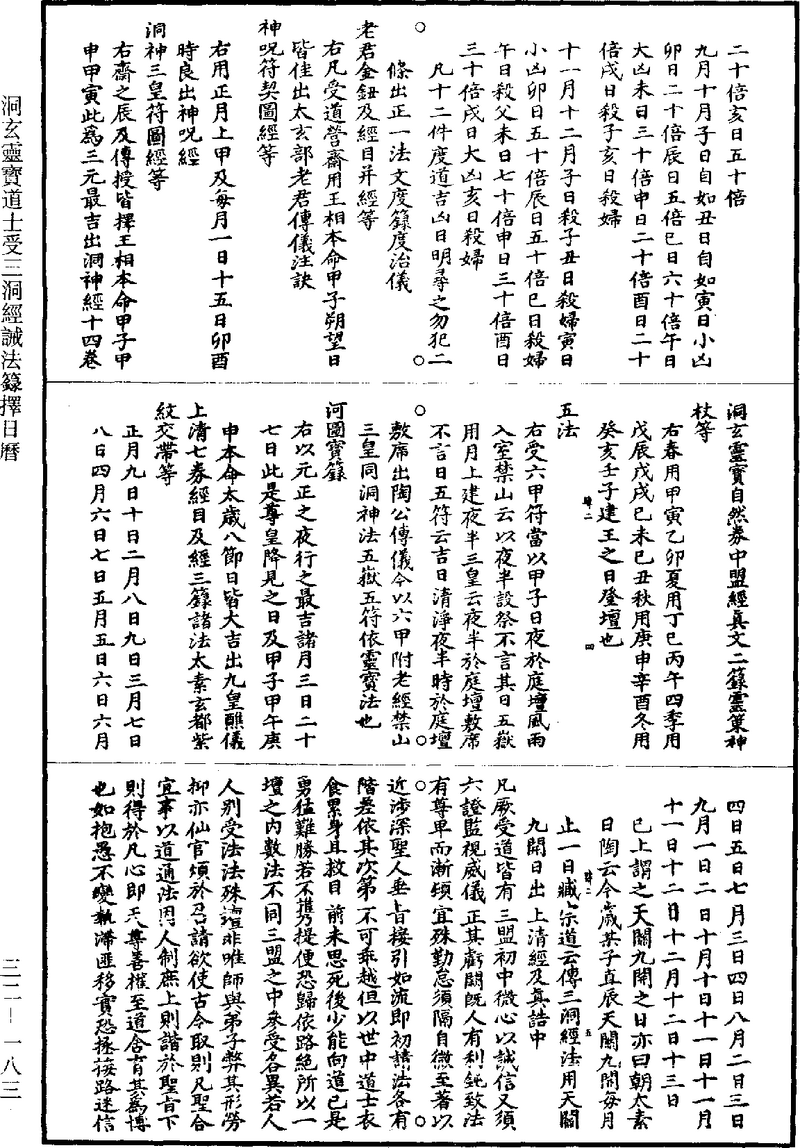 洞玄靈寶道士受三洞經誡法籙擇日曆
三二—一八三
二十倍亥日五十倍
九月十月子日自如丑日自如寅日小凶
卯日二十倍辰日五倍巳日六十倍午日
大凶未日三十倍申日二十倍酉日二十
倍戌日殺子亥日殺婦
十一月十二月子日殺子丑日殺婦寅日
小凶卯日五十倍辰日五十倍巳日殺婦
午日殺父未日七十倍申日三十倍酉日
三十倍戌日大凶亥日殺婦
凡十二件度道吉凶日明尋之勿犯二
條出正一法文度籙度治儀
老君金鈕及經目并經等
右凡受道營齋用王相本命甲子朔望日
皆佳出太玄部老君傳儀注訣
神呪符契圖經等
右用正月上甲及每月一日十五日卯酉
時良出神呪經
洞神三皇符圖經等
右齋之辰及傳授皆擇王相本命甲子甲
申甲寅此為三元最吉出洞神經十四卷
洞玄靈寶自然券中盟經真文二籙靈策神
杖等
右春用甲寅乙卯夏用丁巳丙午四季用
戊辰戊戌巳未巳丑秋用庚申辛酉冬用
癸亥壬子建王之日登壇也
五法
右受六甲符當以甲子日夜於庭壇風雨
入室禁山云以夜半設祭不言其日五嶽
用月上建夜半三皇云夜半於庭壇敷席
不言日五符云吉日清淨夜半時於庭壇
敷席出陶公傳儀今以六甲附老經禁山
三皇同洞神法五嶽五符依靈寶法也
河圖寶籙
右以元正之夜行之最吉諸月三日二十
七日此是尊皇降見之日及甲子甲午庚
申本命太歲八節日皆大吉出九皇醮儀
上清七券經目及經三籙諸法太素玄都紫
紋交帶等
正月九日十日二月八日九日三月七日
八日四月六日七日五月五日六日六月
四日五日七月三日四日八月二日三日
九月一日二日十月十日十一日十一月
十一日十二日十二月十二日十三日
已上謂之天關九開之日亦曰朝太素
日陶云今歲某子直辰天關九開每月
止一日臧宗道云傳三洞經法用天關
九開日出上清經及真誥中
凡厥受道皆有三盟初中微心以誠信又須
六證監視威儀正其虧闕既人有利鈍致法
有尊卑而漸頓宜殊勤怠須隔自微至著以
近涉深聖人垂旨接引如流即初講法各有
階差依其次第不可乖越但以世中道士衣
食累身且救目前未思死後少能向道已是
勇猛難勝若不攜提便恐歸依路絕所以一
壇之內數法不同三盟之中參受各異若人
人別受法法殊壇非唯師與弟子弊其形勞
抑亦仙官煩於召請欲使古今取則凡聖合
宜事以道通法因人制庶上則諧於聖旨下
則得於凡心即天尊善權至道含育其為博
也如抱愚不變執滯匪移實恐拯接路迷信